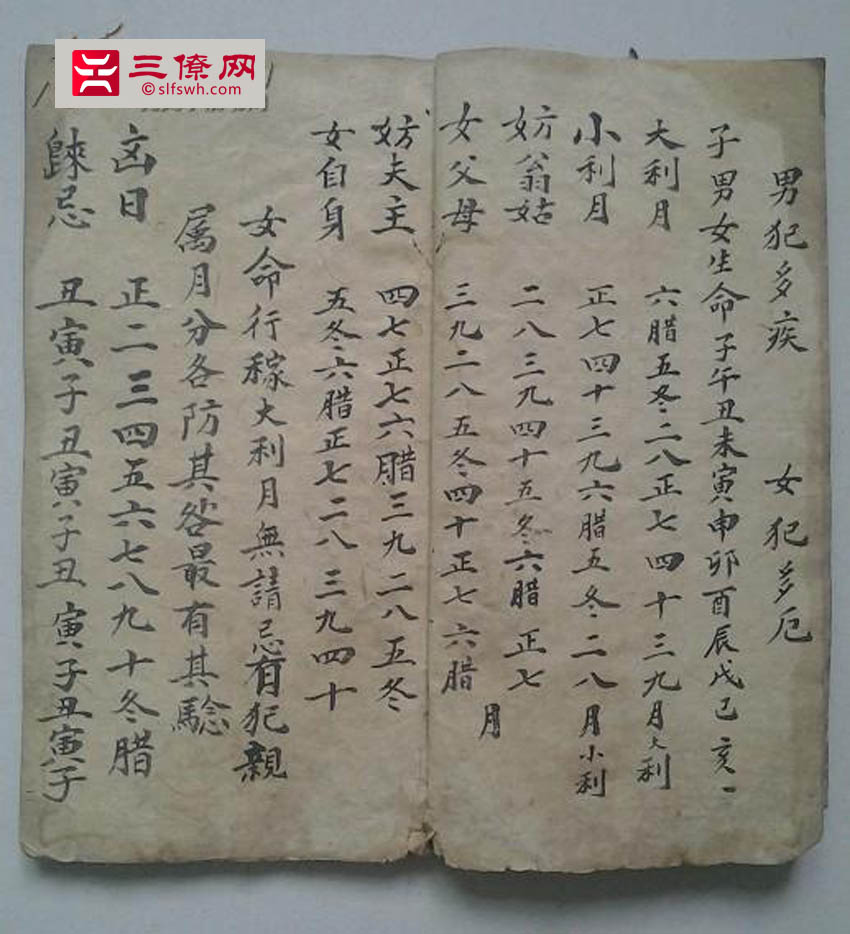 三僚网
©slfswh.com
男犯多疾 女犯多厄
子男女生命子午丑未寅申卯酉辰戌巳亥一
大利月 六腊五冬二八正七四十三九月大利
小利月 正七四十三九六腊五冬二八月小利
妨翁姑 二八三九四十五冬六腊正七月
女父母 三九二八五冬四十正七六腊
妨夫主 四七正七六腊三九二八五冬
女自身 五冬六腊正七二八三九四十
女命行稼大利月無請忌有犯親
属月分各防其咎最有其驗
凶日 正二三四五六七八九十冬腊
歸忌 丑寅子丑寅子丑寅子丑寅子